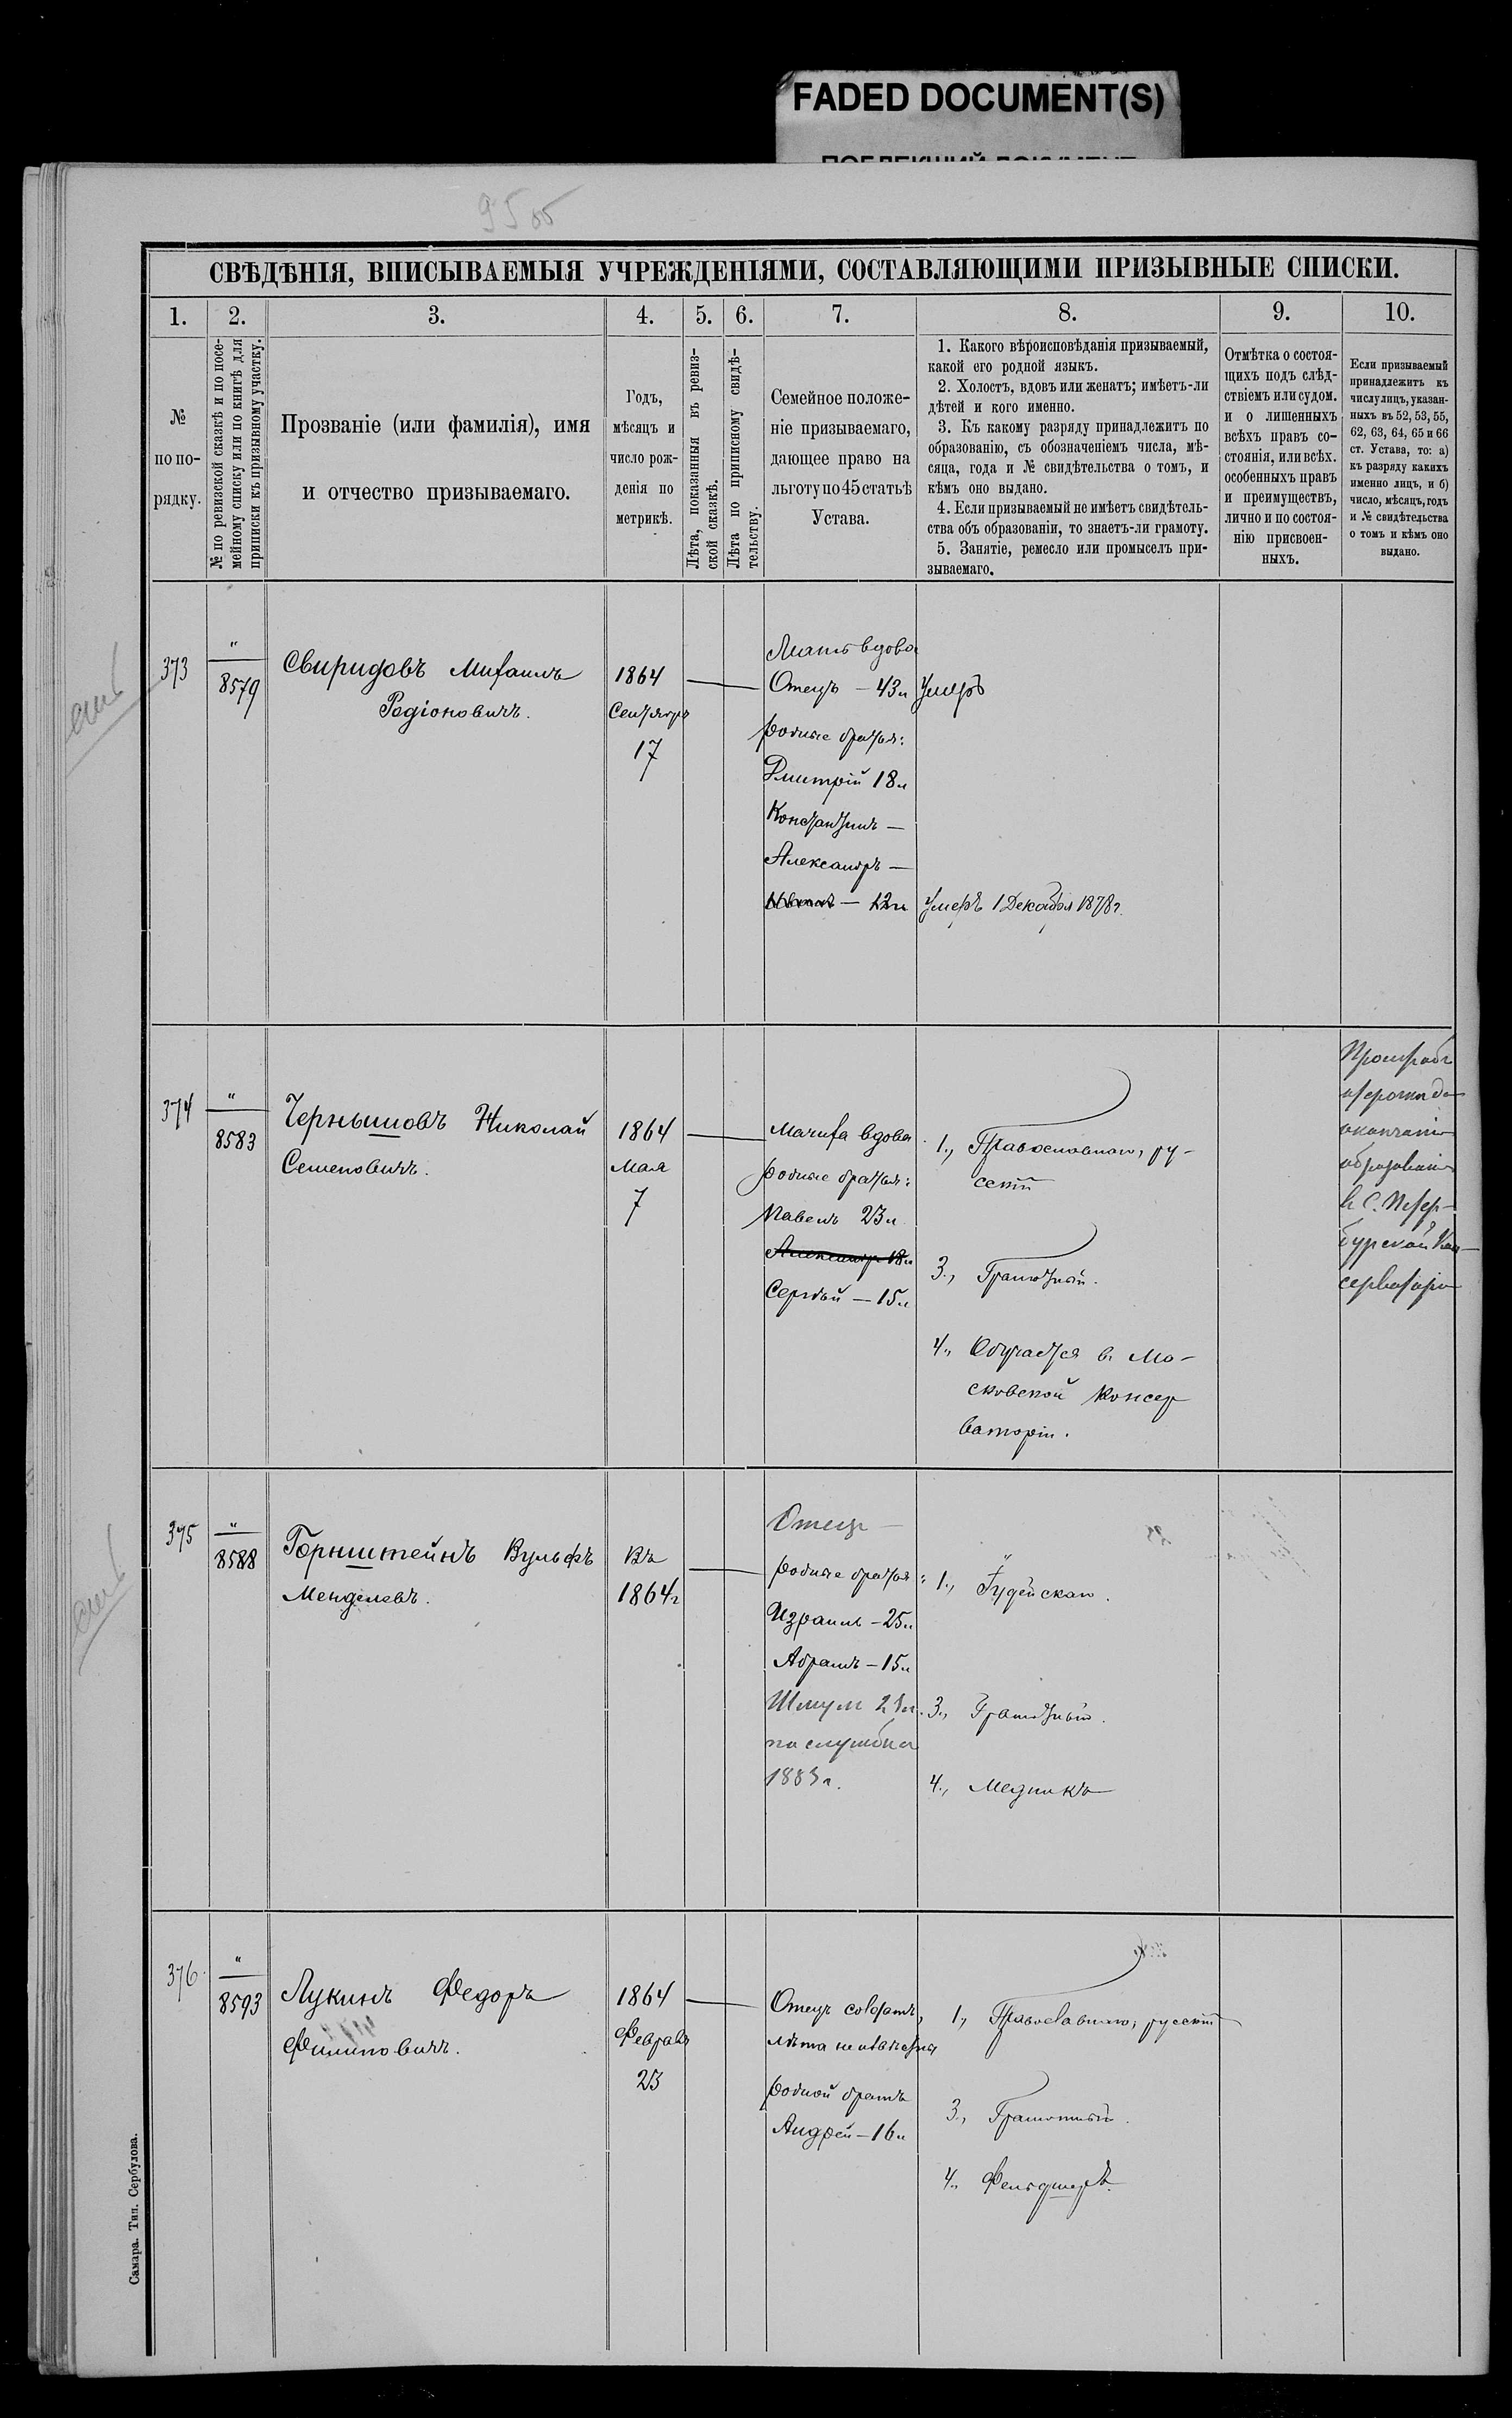 FADED DOCUMENT(S)
9500
СВѢДѢНІЯ, ВПИСЫВАЕМЫЯ УЧРЕЖДЕНІЯМИ, СОСТАВЛЯЮЩИМИ ПРИЗЫВНЫЕ СПИСКИ.
1. 2. 3. 4. 5. 6. 7. 8. 9. 10.
№
по по-
рядку.
№ по ревизской сказкѣ и по посе-
мейному списку или по книгѣ для
приписки къ призывному участку.
Прозваніе (или фамилія), имя
и отчество призываемаго.
Годъ,
мѣсяцъ и
число рож-
денія по
метрикѣ.
Лѣта, показанныя въ ревиз-
ской сказкѣ.
Лѣта по приписному свидѣ-
тельству.
Семейное положе-
ніе призываемаго,
дающее право на
льготу по 45 статьѣ
Устава.
1. Какого вѣроисповѣданія призываемый,
какой его родной языкъ.
2. Холостъ, вдовъ или женатъ; имѣетъ-ли
дѣтей и кого именно.
3. Къ какому разряду принадлежитъ по
образованію, съ обозначеніемъ числа, мѣ-
сяца, года и № свидѣтельства о томъ, и
кѣмъ оно выдано.
4. Если призываемый не имѣетъ свидѣтель-
ства объ образованіи, то знаетъ-ли грамоту.
5. Занятіе, ремесло или промыселъ при-
зываемаго.
Отмѣтка о состоя-
щихъ подъ слѣд-
ствіемъ или судом.
и о лишенныхъ
всѣхъ правъ со-
стоянія, или всѣх.
особенныхъ правъ
и преимуществъ,
лично и по состоя-
нію присвоен-
ныхъ.
Если призываемый
принадлежитъ къ
числу лицъ, указан-
ныхъ въ 52, 53, 55,
62, 63, 64, 65 и 66
ст. Устава, то: а)
къ разряду какихъ
именно лицъ, и б)
число, мѣсяцъ, годъ
и № свидѣтельства
о томъ и кѣмъ оно
выдано.
373
"
8579
Свиридовъ Михаилъ
Родіоновичъ.
1864
Сентября
17
Мать вдова
Отецъ — 43 л
родные братья:
Дмитрій 18 л
Константинъ —
Александръ —
Иванъ — 12 л
Умеръ
Умеръ 1 Декабря 1878 г.
374
"
8583
Чернышовъ Николай
Семеновичъ.
1864
Мая
7
Мачиха вдова
родные братья:
Павелъ 23 л
Александръ 18 л
Сергѣй — 15 л
1., Православнаго, ру-
сскій
3., Грамотный.
4., Обучается въ Мо-
сковской Консер
ваторіи.
отсрочки до
окончанія
образованія
в С. Петер-
бурской Кон-
серваторіи
375
"
8588
Горнштейнъ Вульфъ
Менделевъ.
Въ
1864 г
Отецъ —
родные братья:
Израиль — 25 л
Абрамъ — 15 л
Шмуль 21 л
на службѣ
1883 г.
1., Іудейскаго.
3., Грамотный.
4., Медникъ
376.
"
8593
Лукинъ Федоръ
Филиповичъ.
1864
Февраля
23
Отецъ солдатъ,
лѣта неизвѣстны
родной братъ
Андрей — 16 л
1., Православнаго, русскій
3., Грамотный.
4., Фельдшеръ.
Самара. Тип. Сербулова.